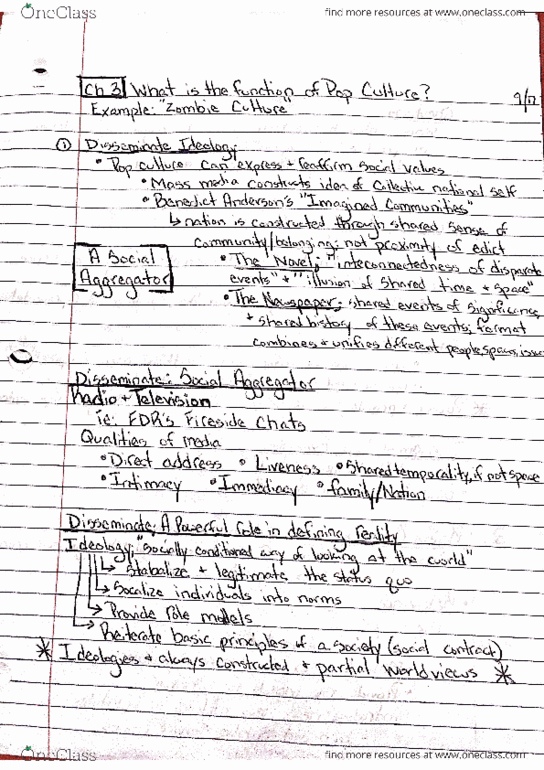 OneClass
find more resources at www.oneclass.com
Ch 3 What is the function of Pop Culture?
9/12
Example: "Zombie Culture"
① Disseminate Ideology
• Pop culture can express + reaffirm social values
• Mass media constructs idea of Collective national self
• Benedict Anderson's "Imagined Communities"
↳ nation is constructed through shared sense of
Community/belonging; not proximity of edict
A Social Aggregator
• The "Novel": "interconnectedness of disparate
events" + "illusion of shared time + space"
• The Newspaper: shared events of significance
+ shared history of these events; format
combines + unifies different people, spaces, issu
Disseminate: Social Aggregator
Radio + Television
ie: FDR's Fireside Chats
Qualities of media
• Direct address • Liveness • Shared temporality, if not space
• Intimacy • Immediacy • family/Nation
Disseminate: A Powerful role in defining reality
Ideology: "socially conditioned way of looking at the world"
↳ Stabalize + legitimate the status quo
↳ Socalize individuals into norms
↳ Provide role models
↳ Reiterate basic principles of a society (social contract)
* Ideologies + always constructed + partial worldviews *
OneClass
find more resources at www.oneclass.com